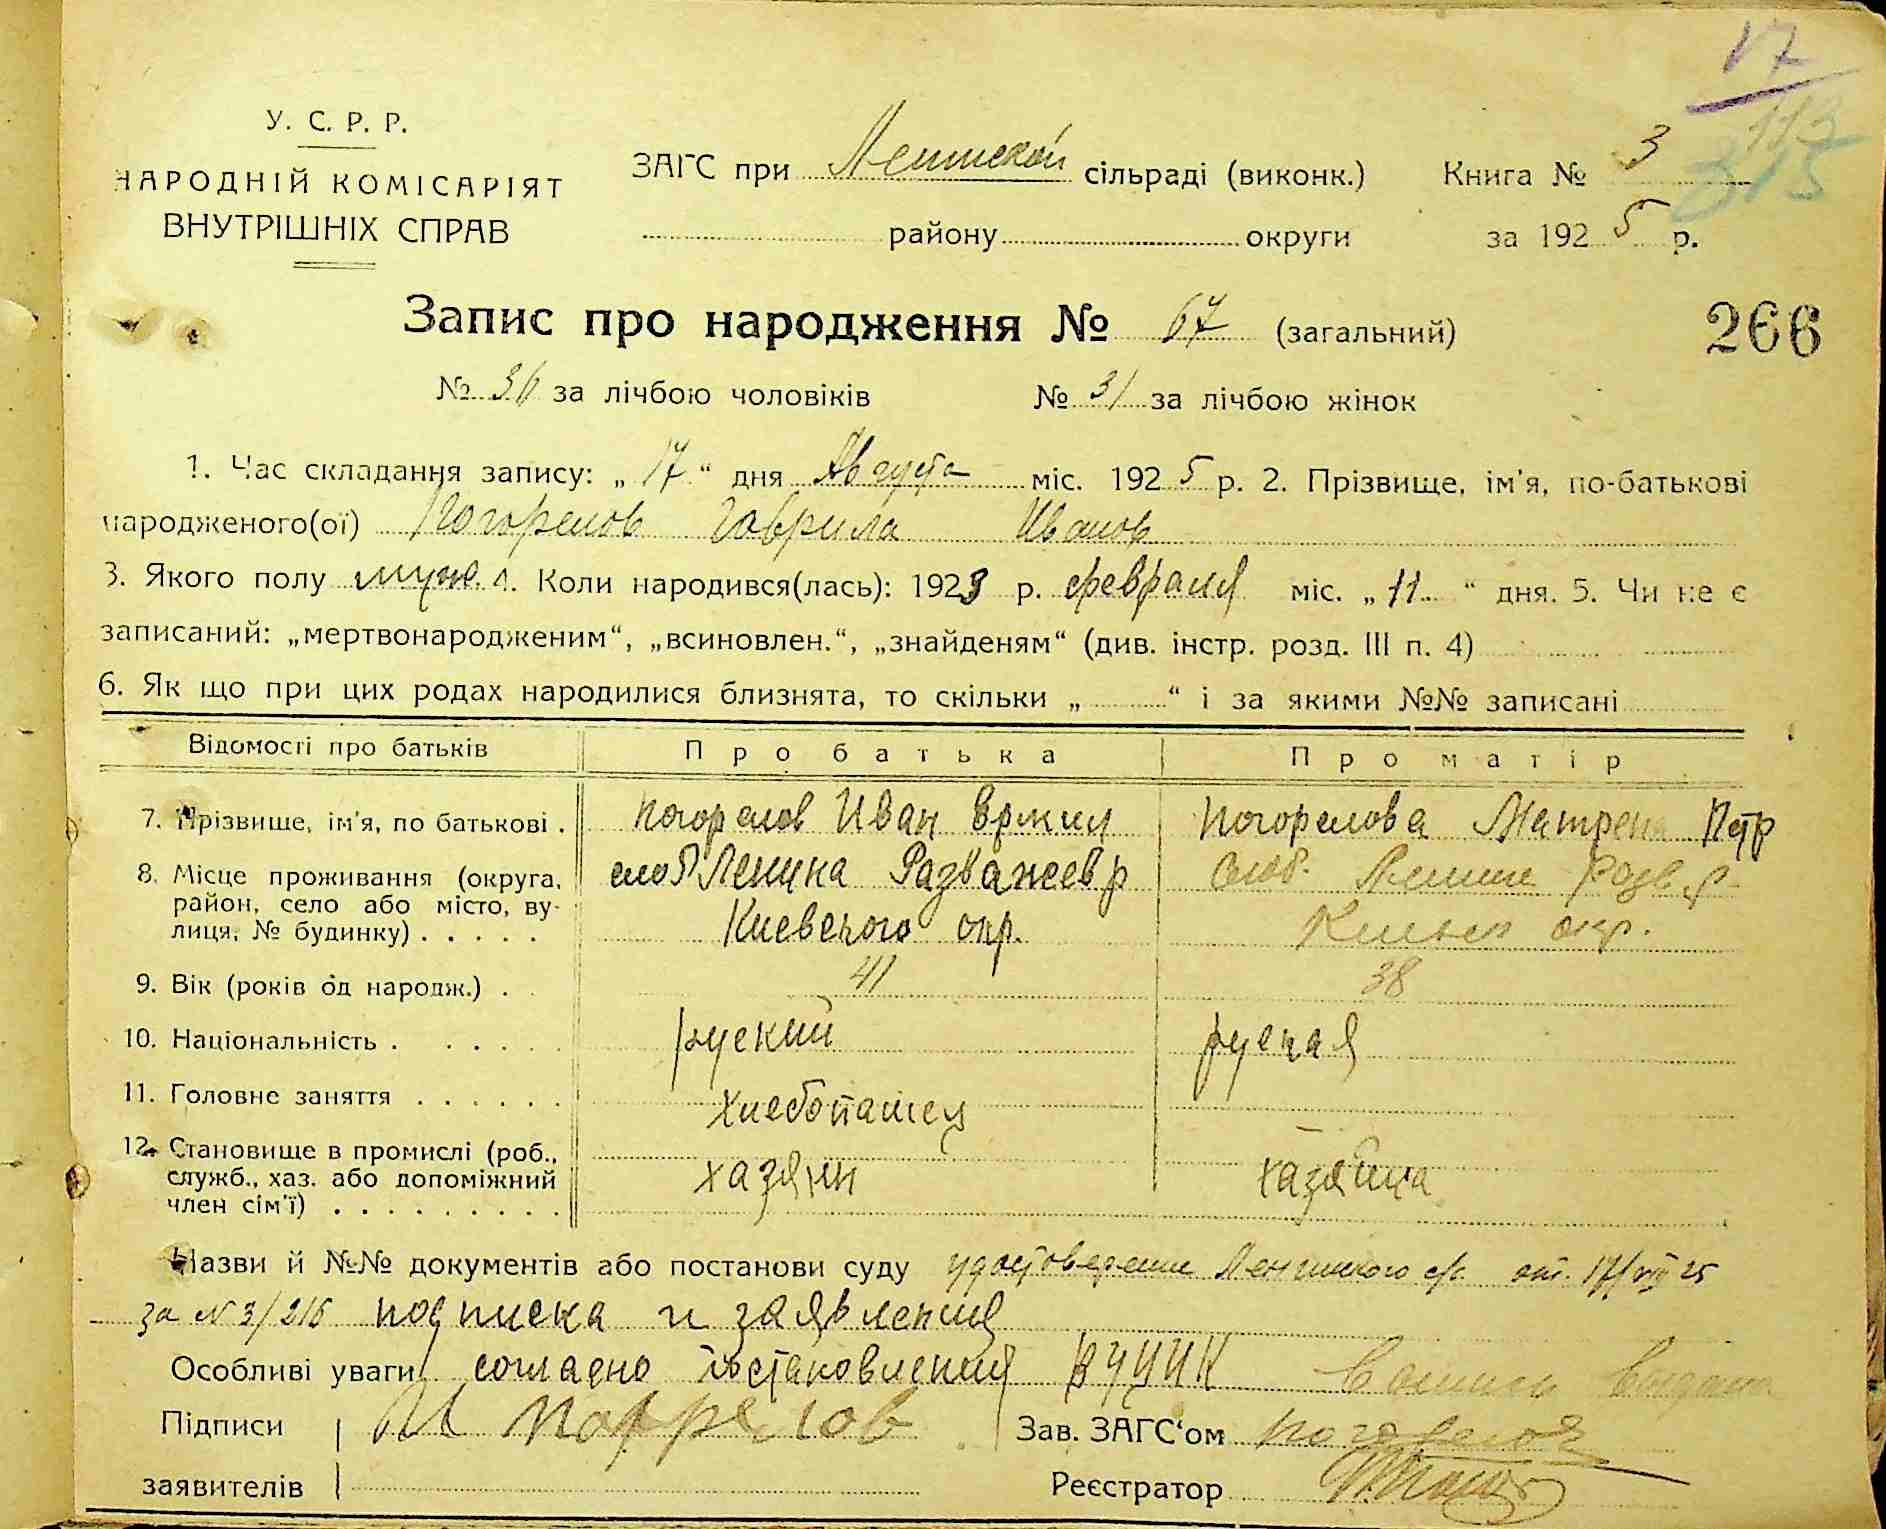 17
113
315
У. С. Р. Р.
НАРОДНІЙ КОМІСАРІЯТ
ВНУТРІШНІХ СПРАВ
ЗАГС при Ленинской сільраді (виконк.) Книга № 3
району округи за 1925 р.
Запис про народження № 67 (загальний)
266
№ 36 за лічбою чоловіків № 31 за лічбою жінок
1. Час складання запису: „17“ дня Августа міс. 1925 р. 2. Прізвище, ім'я, по-батькові
народженого(ої) Погорелов Гаврила Иванов
3. Якого полу муж. 4. Коли народився(лась): 1923 р. февраля міс. „11“ дня. 5. Чи не є
записаний: „мертвонародженим“, „всиновлен.“, „знайденям“ (див. інстр. розд. III п. 4)
6. Як що при цих родах народилися близнята, то скільки „ “ і за якими №№ записані
Відомості про батьків Про батька Про матір
7. Прізвище, ім'я, по батькові . Погорелов Иван Погорелова Матрена Петр
8. Місце проживання (округа, слоб Ленина Разважев р слоб. Ленина Розв. р
район, село або місто, ву-
лиця, № будинку) . . . . . Киевского окр. окр.
9. Вік (років од народж.) . 41 38
10. Національність . . . . . . руский руская
11. Головне заняття . . . . . . хлебопашец
12. Становище в промислі (роб.,
служб., хаз. або допоміжний хазяин хазяйка
член сім'ї) . . . . . . . . .
Назви й №№ документів або постанови суду удостоверение Ленинского с/с. от. 17/VIII 25
за N 3/216 подписка и заявления
Особливі уваги согласно постановления ВУЦИК выдана
Підписи И Погорелов Зав. ЗАГС‘ом Погорелов
заявителів Реєстратор